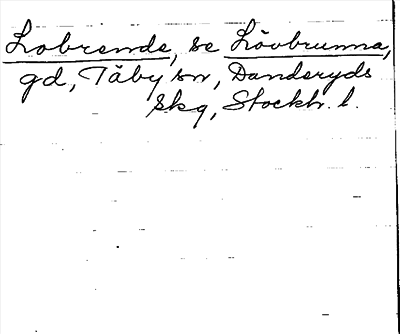 Lobrende, se Lövbrunna,
gd, Täby sn, Danderyds
skg, Stockh. l.